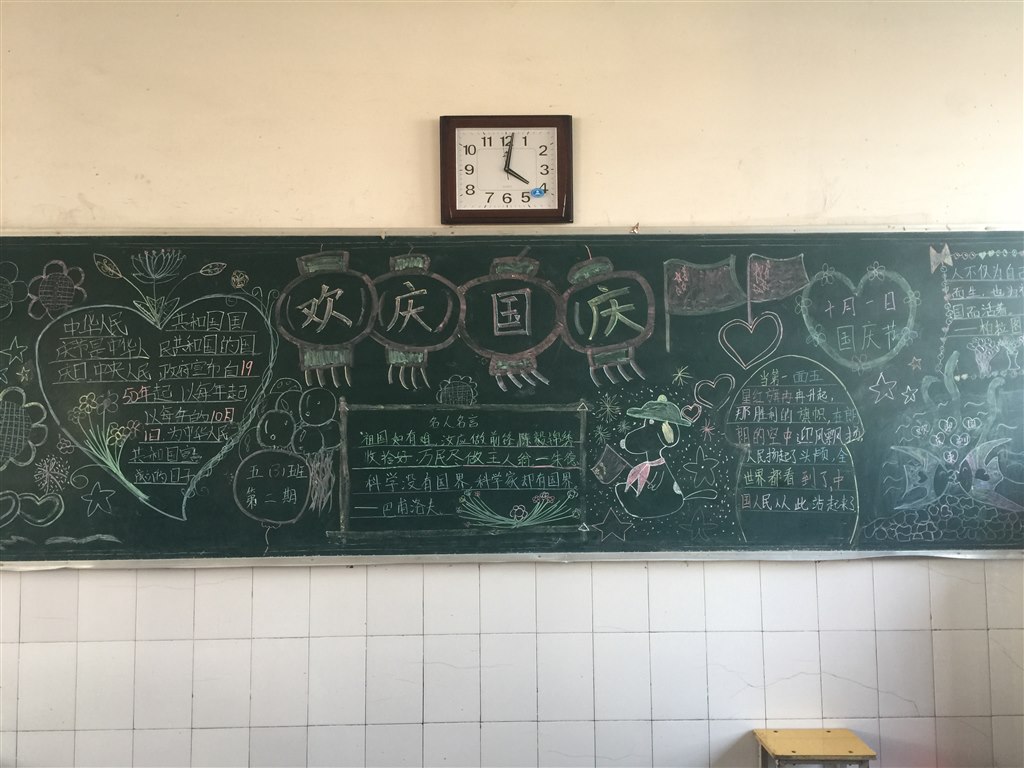 11 12 1
10 2
9 3
8 4
7 6 5
欢庆国庆
中华人民 共和国国
庆节是中华人 民共和国的国
庆日 中央人民 政府宣布自19
50年起 以每年
以每年的10月
1日 为中华人民
共和国
的日子
五(3)班
第二期
名人名言
祖国如有难 汝应做前锋 陈毅
收拾好 万民尽做主人翁 一朱
科学没有国界 科学家却有国界
——巴甫洛夫
当第一面五
星红旗冉冉升起,
那胜利的旗帜 在
祖的空中 迎风飘
人民扬起了头颅 全
世界都看到了中
国人民从此站起来了
十月一日
国庆节
人不仅为自己
而生 也为
国而活着
——柏拉图